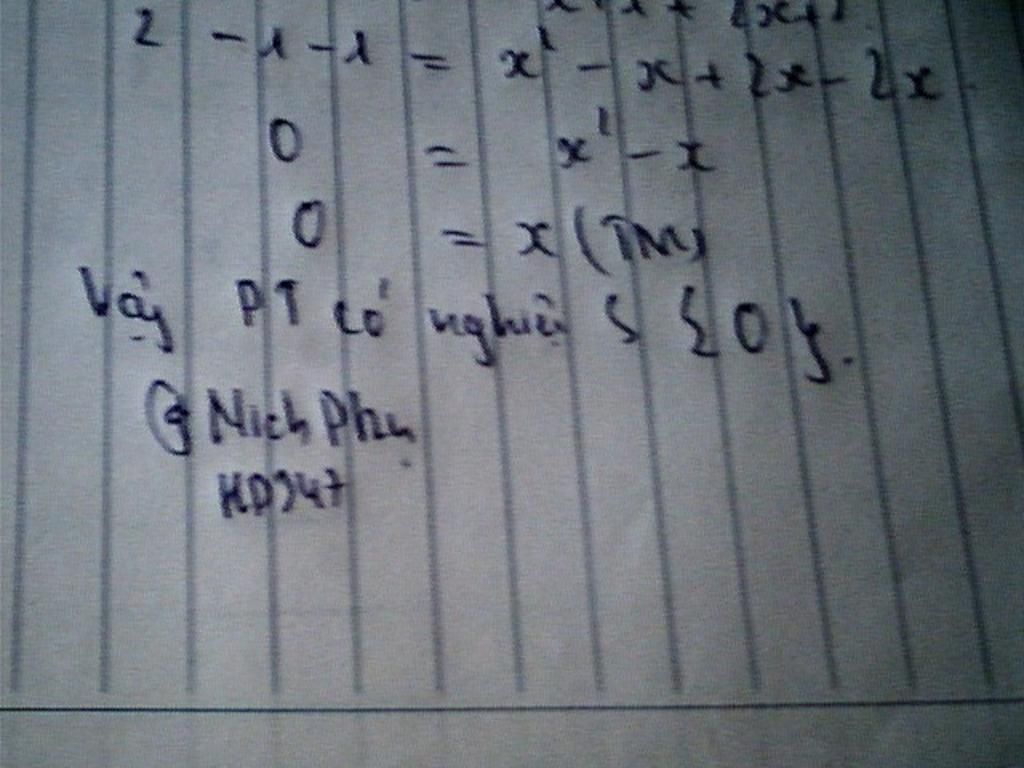 2 - 1 - 1 = x² - x + 2x - 2x
0 = x² - x
0 = x (TM)
Vậy PT có nghiệm S {0}.
@ Nich Phu
HD347